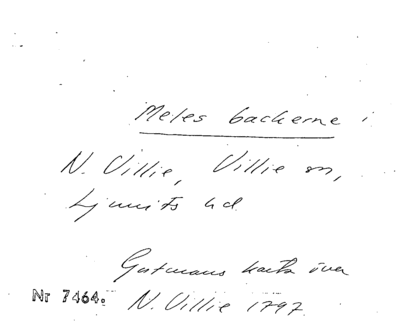 Meles backerne i
N. Villie, Villie sn,
Ljunits hd
Gutmans karta över
Nr 7464.
N. Villie 1797.